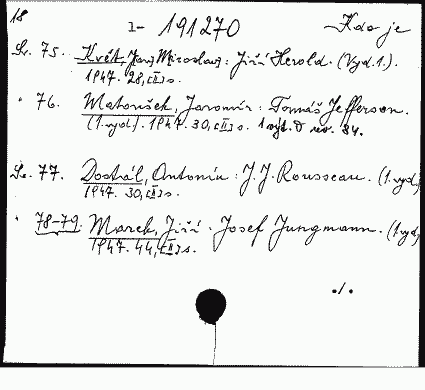 18
1- 191270 Kdo je
Sv. 75. Květ, Jan Miroslav: Jiří Herold. (Vyd.1.).
1947. 28, [II] s.
" 76. Matoušek, Jaromír: Tomáš Jefferson.
(1.vyd.). 1947. 30, [II] s. 1 výt. D nov. 84.
Sv. 77. Dostál, Antonín: J.J. Rousseau. (1.vyd.
1947. 30, [II] s.
" 78-79. Marek, Jiří: Josef Jungmann. (1.vyd,
1947. 44, [II] s.
./.